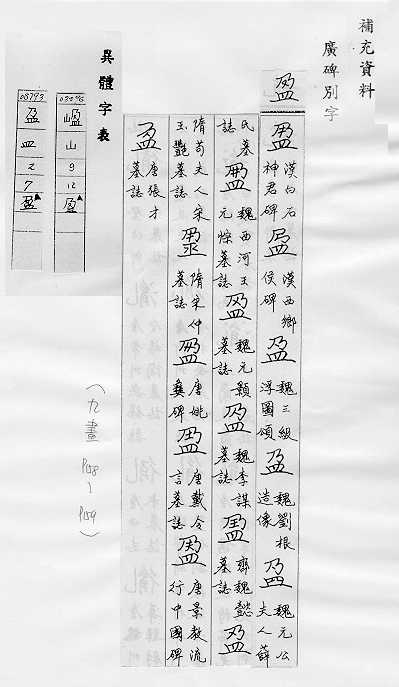 補充資料
廣碑別字
盈
盈 漢白石神君碑 盈 漢西鄉侯碑 盈 魏三級浮圖頌 盈 魏劉根造像 盈 魏元公夫人薛
氏墓誌 盈 魏西河王元悰墓誌 盈 魏元顥墓誌 盈 魏李謀墓誌 盈 齊魏懿墓誌 盈
隋苟夫人宋玉艷墓誌 盈 隋宋仲墓誌 盈 唐姚彝碑 盈 唐戴令言墓誌 盈 唐景教流行中國碑
盈 唐張才墓誌
異體字表
山
9
12
盈
03793
盈
皿
2
7
盈
(九畫 P158~P159)